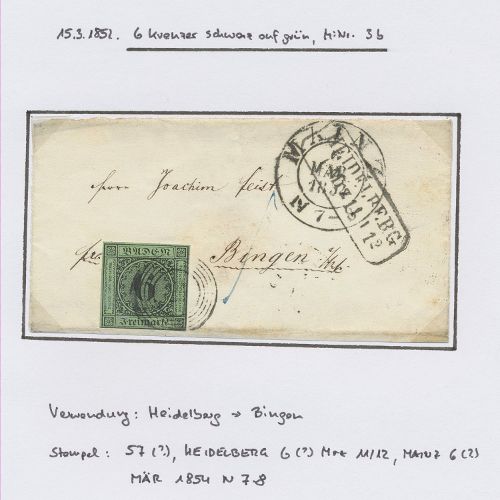 15.3.1852. 6 Kreuzer schwarz auf grün, Mi.Nr. 3b
MAINZ
HEIDELBERG
Herrn Joachim Feist
BADEN
6
Freimarke
Bingen
Verwendung: Heidelberg → Bingen
Stempel: 57 (?), HEIDELBERG 6 (?) Mrz 11/12, MAINZ 6 (?)
MÄR 1854 N 7-8